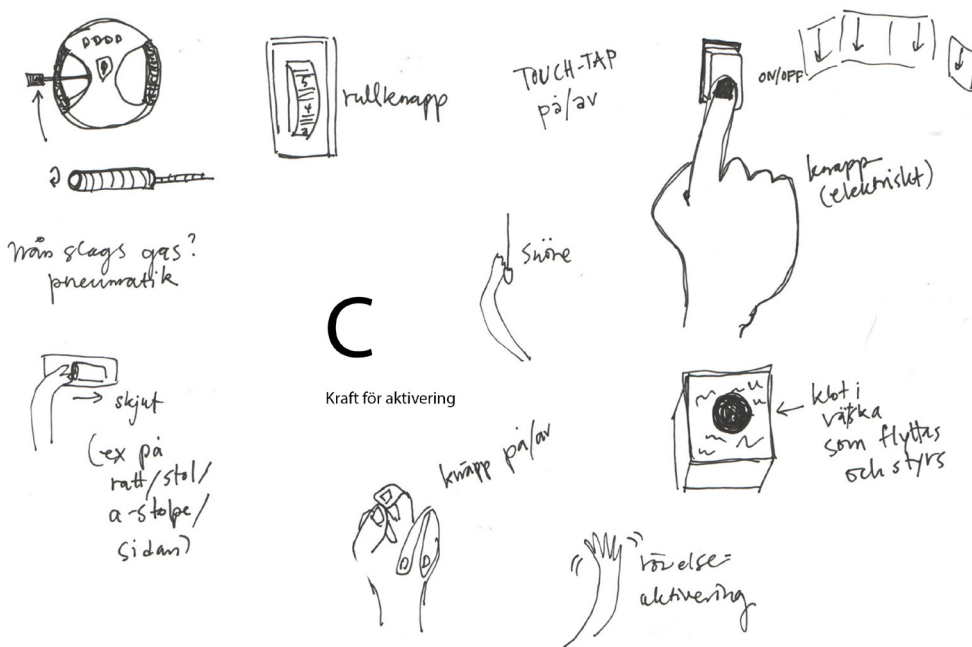 5
4
3
rullknapp
TOUCH-TAP
på/av
ON/OFF
knapp
(elektriskt)
nån slags gas?
pneumatik
snöre
C
Kraft för aktivering
skjut
(ex på
ratt/stol/
a-stolpe/
sidan)
knäpp på/av
klot i
vätska
som flyttas
och styrs
rörelse=
aktivering